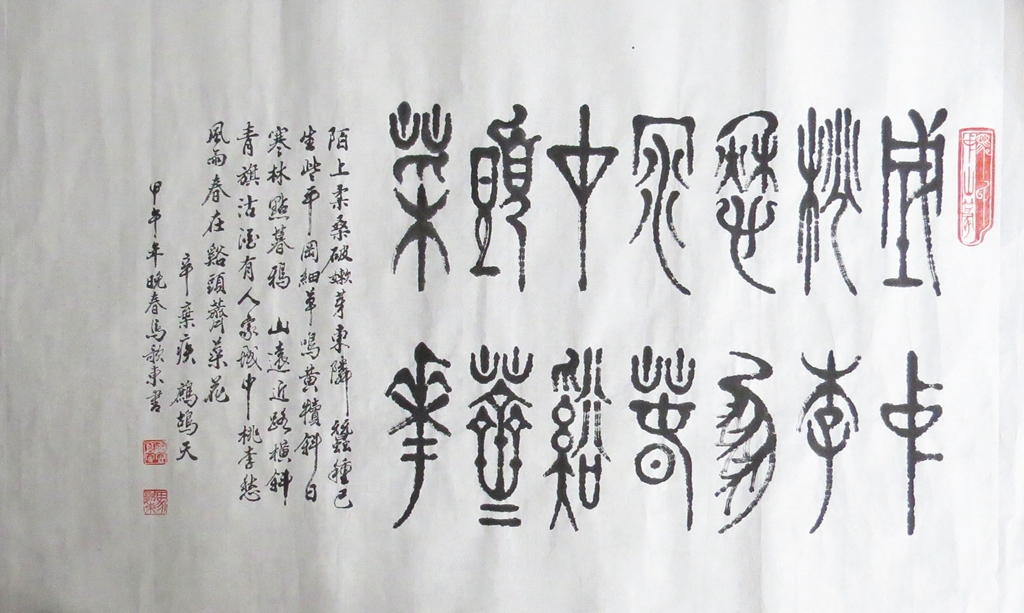 城中
桃李
愁風
雨春
在谿
頭薺
菜華
陌上柔桑破嫩芽東隣蠶種已
生些平岡細草鳴黃犢斜日
寒林點暮鴉 山遠近路橫斜
青旗沽酒有人家城中桃李愁
風雨春在谿頭薺菜花
辛棄疾 鷓鴣天
甲午年晚春馬歌東書